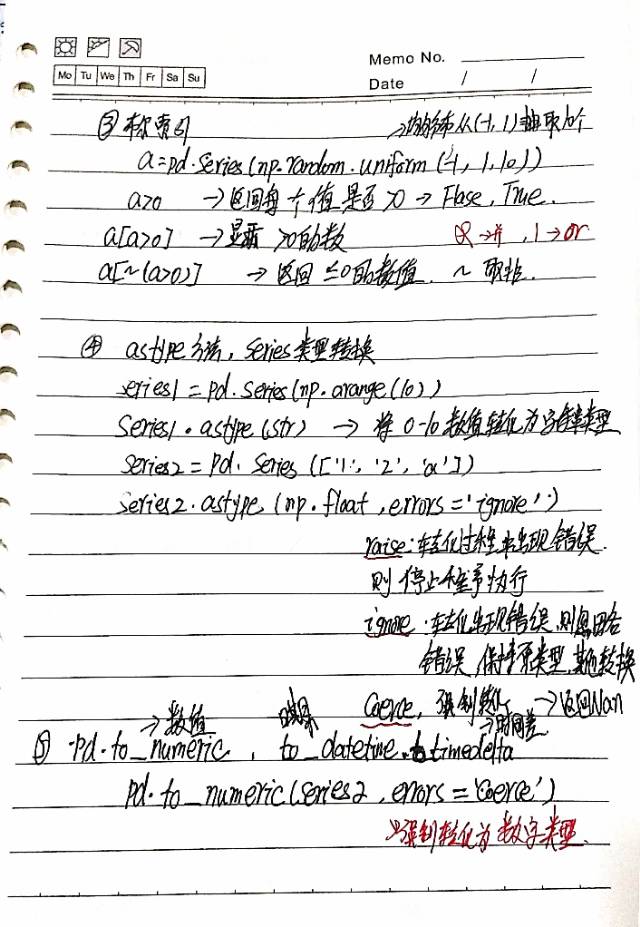 Memo No.
Mo Tu We Th Fr Sa Su
Date / /
③ 布尔索引 →均匀分布从(-1,1)抽取10个
a=pd.Series(np.random.uniform(-1,1,10))
a>0 →返回每个值是否>0 → Flase, True.
a[a>0] →显示>0的数 & →并, | → or
a[~(a>0)] → 返回≤0的数值. ~ 取非.
④ astype方法, Series类型转换
series1 = pd.Series(np.arange(10))
Series1.astype(str) → 将0-10数值转化为字符串类型
Series2 = pd.Series(['1', '2', 'a'])
Series2.astype(np.float, errors='ignore')
raise:转化过程中出现错误.
则停止程序执行
ignore:转化出现错误,则忽略
错误,保持原类型,其他转换
Coerce, 强制转化 →返回Nan
→数值 日期 →时间差
⑤ pd.to_numeric, to_datetime, to_timedelta
pd.to_numeric(series2, errors='Coerce')
→强制转化为数字类型.